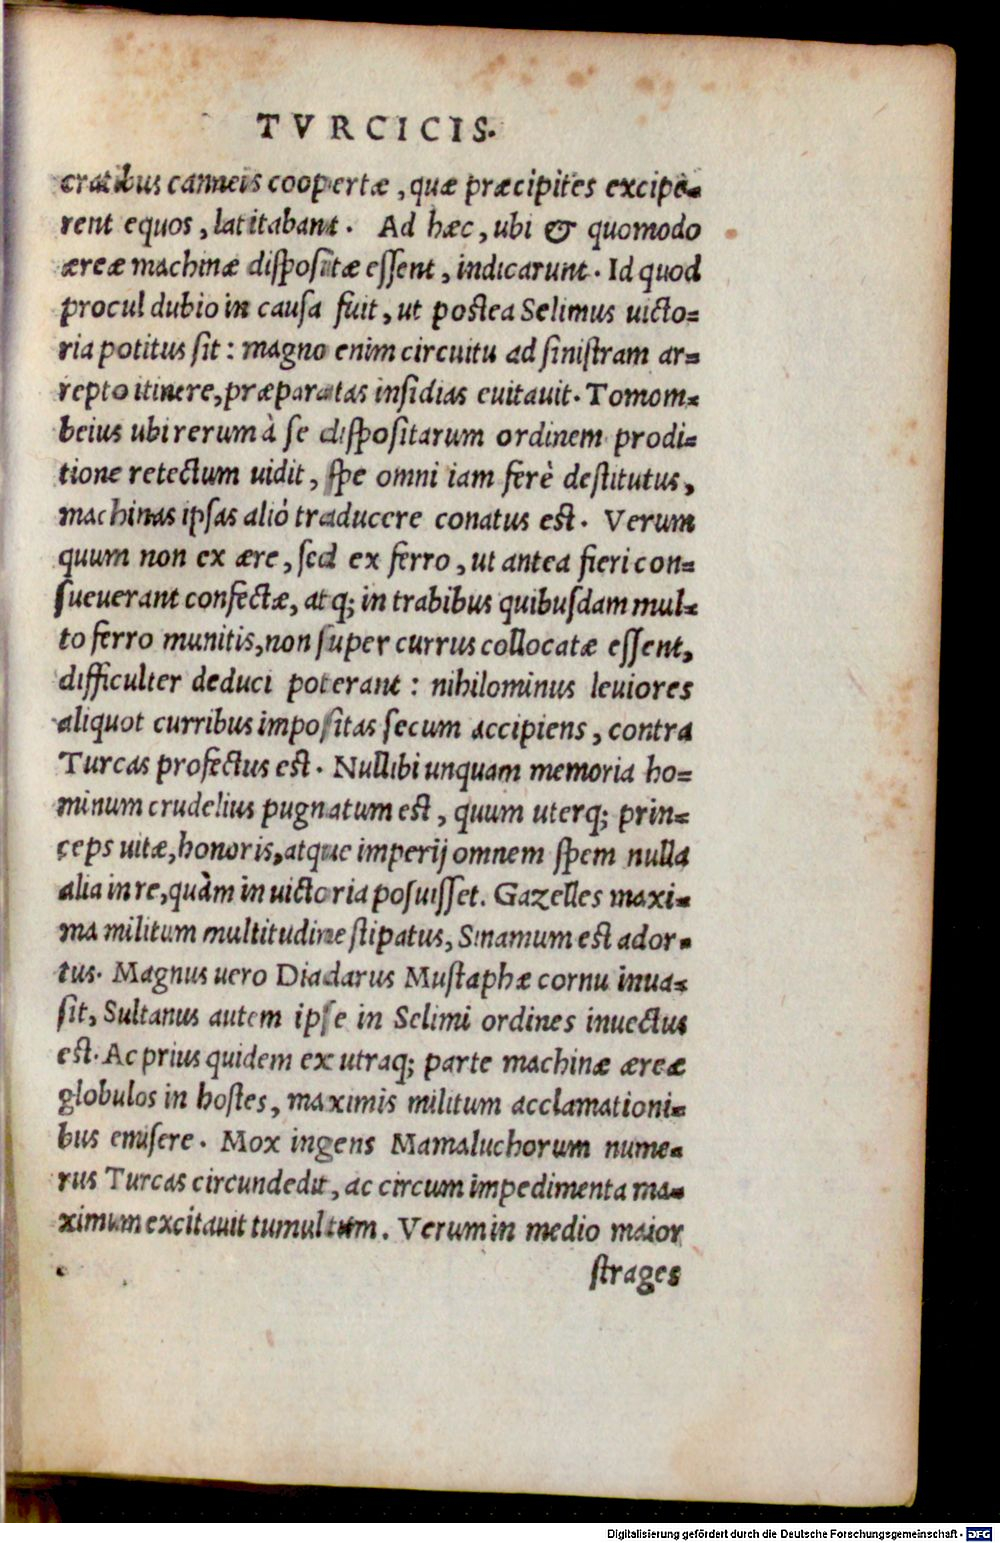 TVRCICIS.
cratibus canneis coopertæ, quæ præcipites excipe=
rent equos, latitabant. Ad hæc, ubi & quomodo
æreæ machinæ diſpoſitæ eſſent, indicarunt. Id quod
procul dubio in cauſa fuit, ut poſtea Selimus uicto=
ria potitus ſit: magno enim circuitu ad ſiniſtram ar=
repto itinere, præparatas inſidias euitauit. Tomom=
beius ubi rerum à ſe diſpoſitarum ordinem prodi=
tione retectum uidit, ſpe omni iam ferè deſtitutus,
machinas ipſas aliò traducere conatus eſt. Verum
quum non ex ære, ſed ex ferro, ut antea fieri con=
ſueuerant confectæ, atq; in trabibus quibuſdam mul=
to ferro munitis, non ſuper currus collocatæ eſſent,
difficulter deduci poterant: nihilominus leuiores
aliquot curribus impoſitas ſecum accipiens, contra
Turcas profectus eſt. Nullibi unquam memoria ho=
minum crudelius pugnatum eſt, quum uterq; prin=
ceps uitæ, honoris, atque imperij omnem ſpem nulla
alia in re, quàm in uictoria poſuiſſet. Gazelles maxi=
ma militum multitudine ſtipatus, Sinamum eſt ador=
tus. Magnus uero Diadarus Muſtaphæ cornu inua=
ſit, Sultanus autem ipſe in Selimi ordines inuectus
eſt. Ac prius quidem ex utraq; parte machinæ æreæ
globulos in hoſtes, maximis militum acclamationi=
bus emiſere. Mox ingens Mamaluchorum nume=
rus Turcas circundedit, ac circum impedimenta ma=
ximum excitauit tumultum. Verum in medio maior
ſtrages
Digitalisierung gefördert durch die Deutsche Forschungsgemeinschaft - DFG